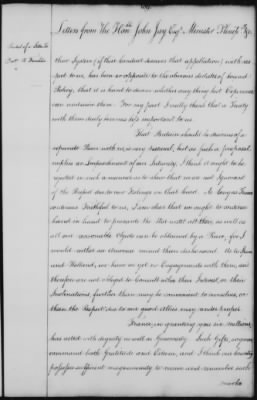 Letters from The Honble John Jay Esqr Minister Plenipy &c.
Extract of a Letter to
Doct. B. Franklin
their System (if their conduct deserves that appellation) with res-
pect to us, has been so opposite to the obvious dictates of sound
Policy, that it is hard to divine whether any thing but Experience
can undeceive them. For my part I really think that a Treaty
with them daily becomes less important to us.
That Britain should be desirous of a
separate Peace with us, is very natural, but as such a proposal
implies an Impeachment of our Integrity, I think it ought to be
rejected in such a manner as to shew that we are not Ignorant
of the Respect due to our Feelings on that head. As long as France
continues Faithful to us, I am clear that we ought to continue
hand in hand to prosecute the War until all their, as well as
all our reasonable Objects can be obtained by a Peace, for I
would rather see America ruined than dishonored. As to Spain
and Holland, we have as yet no Engagements with them, and
therefore are not obliged to Consult either their Interest, or their
Inclinations, further than may be convenient to ourselves, or
than the Respect due to our good allies may render proper.
France, in granting you six millions,
has acted with dignity as well as Generosity. Such Gifts, so given,
command both Gratitude and Esteem, and I think our Country
possesses sufficient magnanimity to receive and remember such
marks